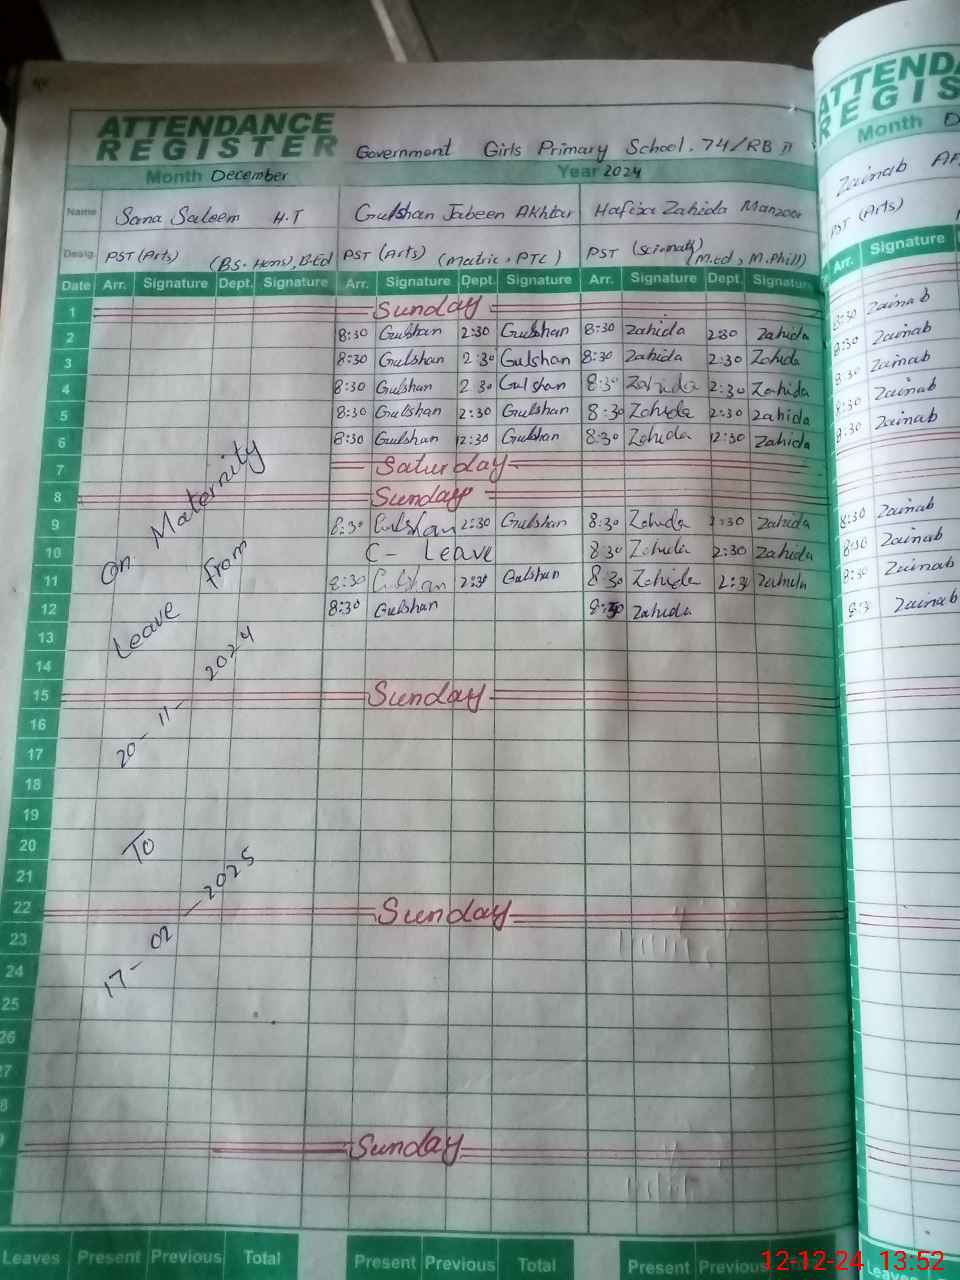 ATTENDANCE REGISTER Government Girls Primary School. 74/RB II
Month December Year 2024
Name Sana Saleem H.T Gulshan Jabeen Akhtar Hafiza Zahida Manzoor
Desig. PST (Arts) (BS. Hons), B.Ed PST (Arts) (Matric, PTC) PST (Sci-math) (M.ed, M.Phill)
Date Arr. Signature Dept. Signature Arr. Signature Dept. Signature Arr. Signature Dept. Signature
1 Sunday
2 8:30 Gulshan 2:30 Gulshan 8:30 Zahida 2:30 Zahida
3 8:30 Gulshan 2:30 Gulshan 8:30 Zahida 2:30 Zahida
4 8:30 Gulshan 2:30 Gulshan 8:30 Zahida 2:30 Zahida
5 8:30 Gulshan 2:30 Gulshan 8:30 Zahida 2:30 Zahida
6 8:30 Gulshan 12:30 Gulshan 8:30 Zahida 12:30 Zahida
7 Saturday
8 Sunday
9 8:30 Gulshan 2:30 Gulshan 8:30 Zahida 2:30 Zahida
10 C- Leave 8:30 Zahida 2:30 Zahida
11 8:30 Gulshan 2:30 Gulshan 8:30 Zahida 2:30 Zahida
12 8:30 Gulshan 8:30 Zahida
13
14
15 Sunday
16
17
18
19
20
21
22 Sunday
23
24
25
26
27
Sunday
On Maternity
Leave from
20-11-2024
To
17-02-2025
Leaves Present Previous Total Present Previous Total Present Previous
ATTENDA
REGIS
Month D
Zainab
PST (Arts)
Arr. Signature
8:30 Zainab
8:30 Zainab
8:30 Zainab
8:30 Zainab
8:30 Zainab
8:30 Zainab
8:30 Zainab
8:30 Zainab
8:3 Zainab
12-12-24 13:52